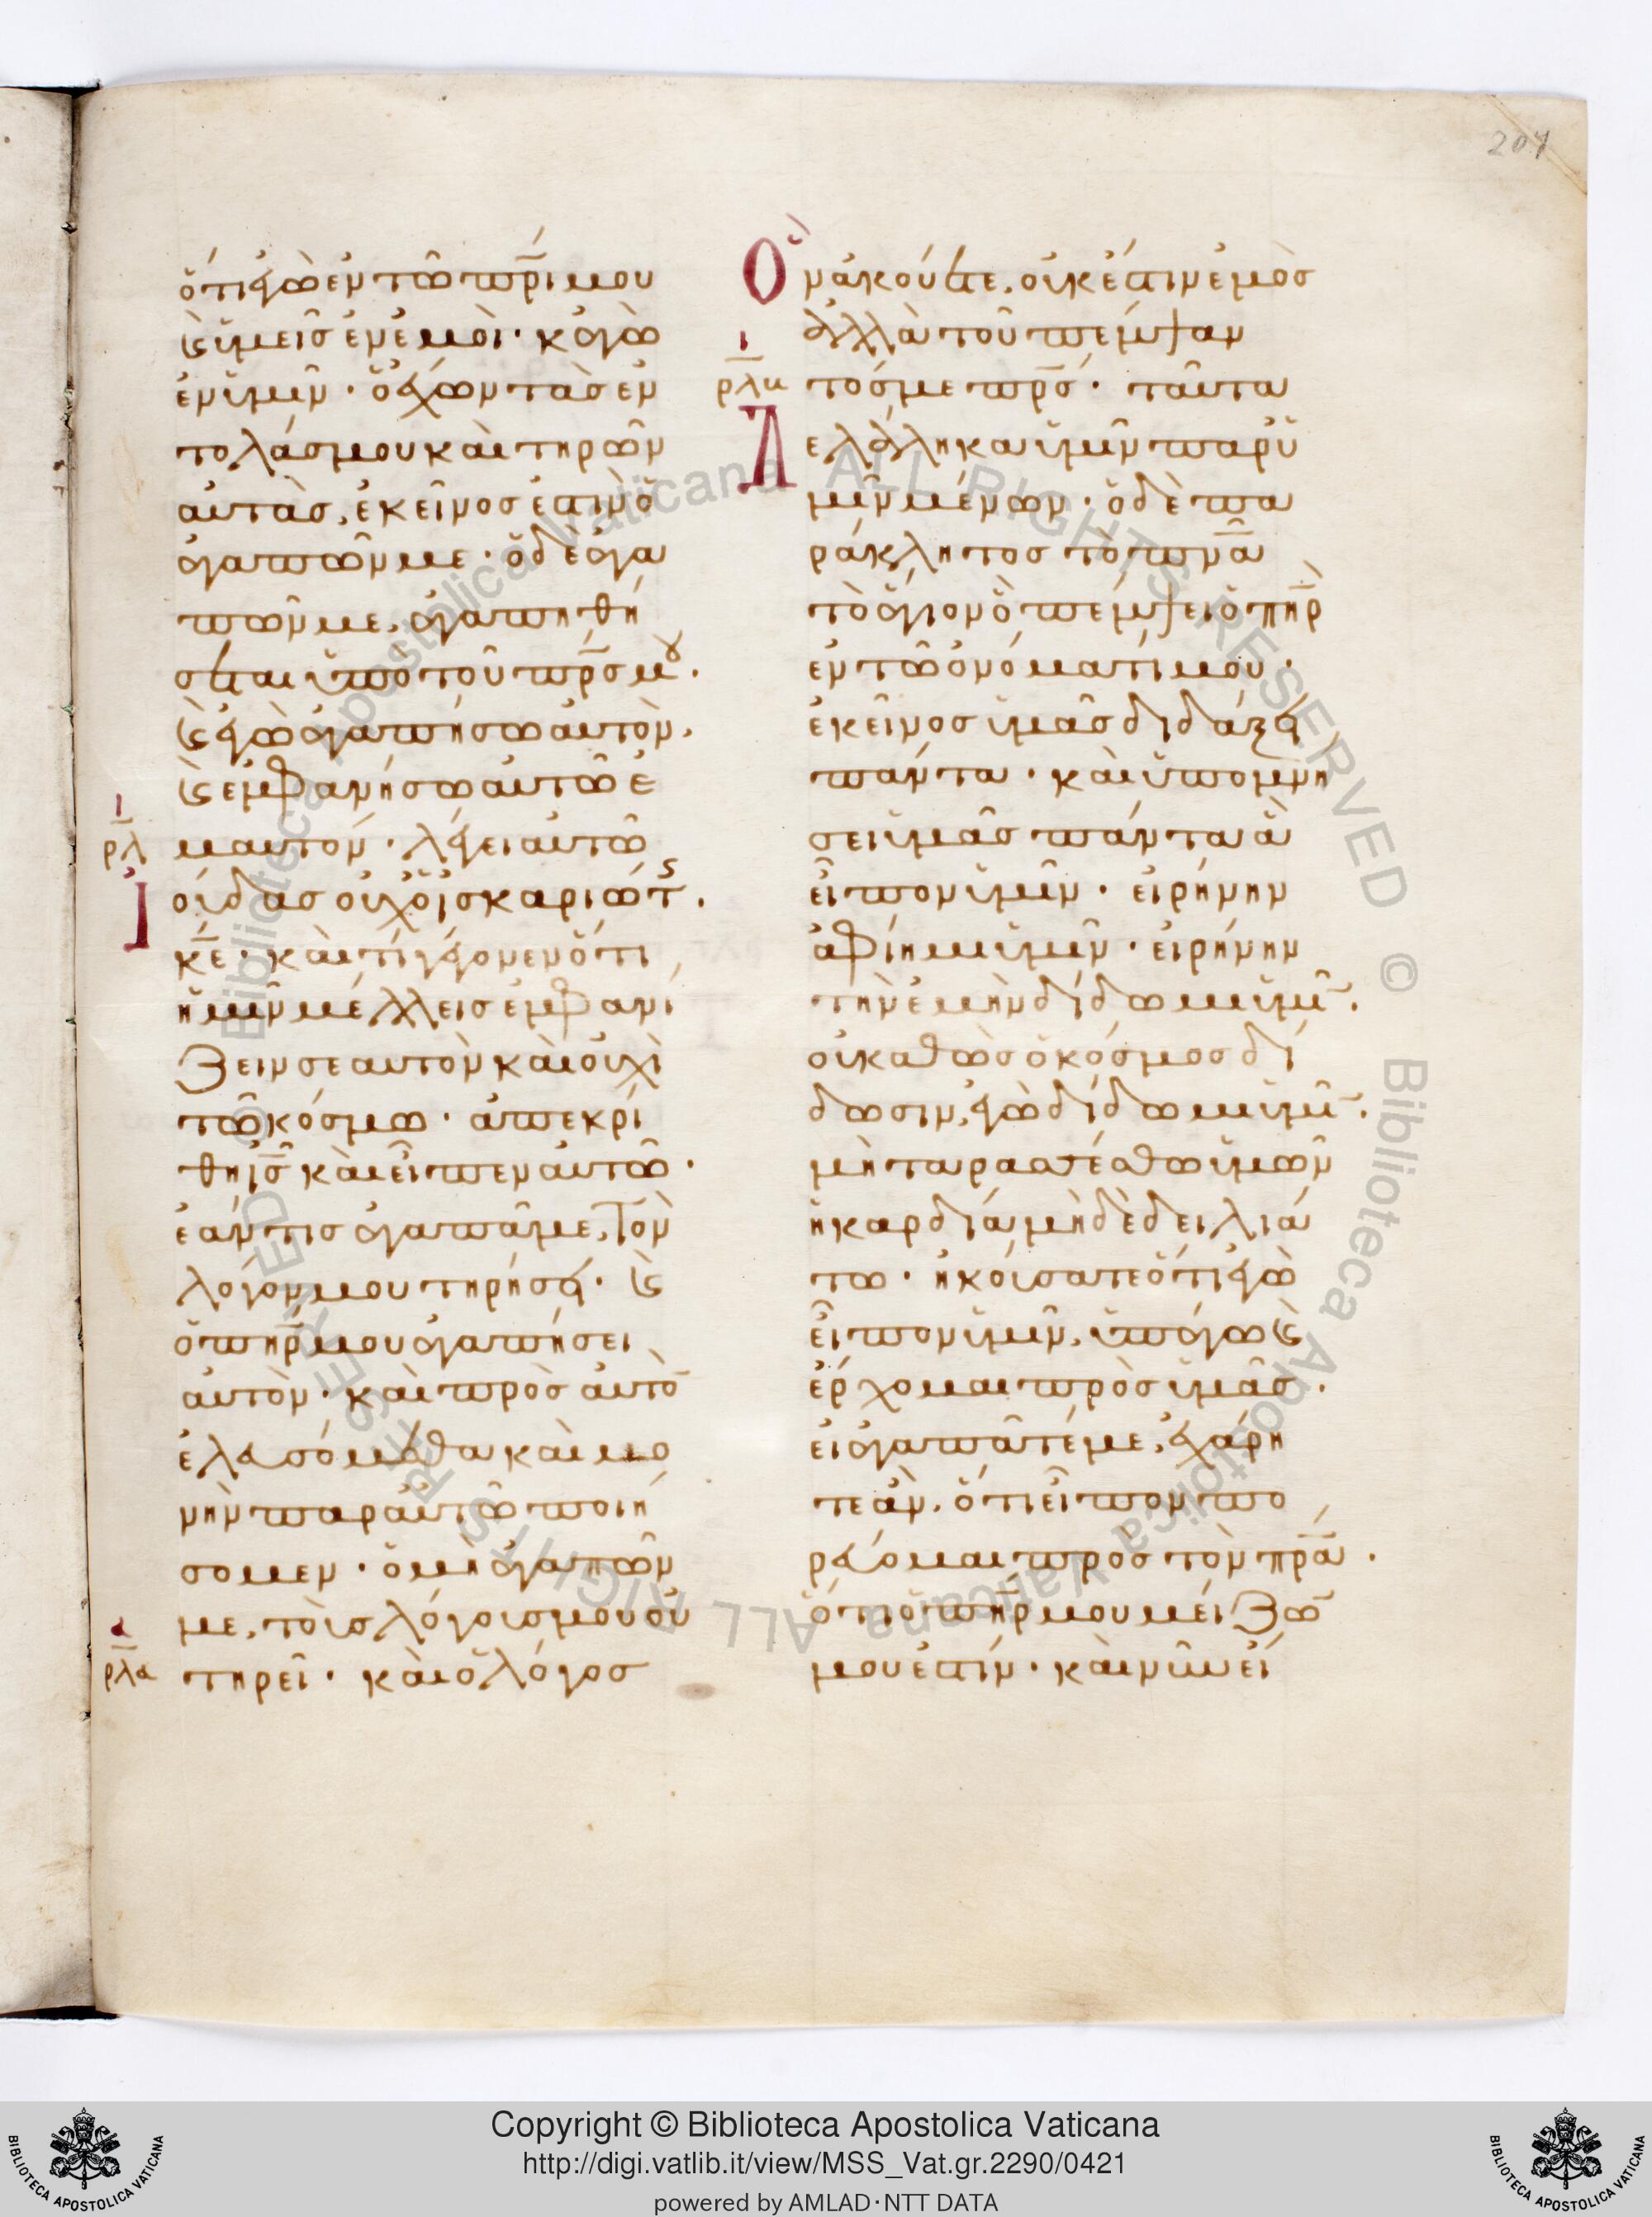 207
ὅτι ἐγὼ ἐν τῶ πρ̅ι μου
ϗ ὑμεῖς ἐν ἐμοὶ· κἀγὼ
ἐν ὑμῖν· ὁ ἔχων τὰς ἐν
τολάς μου καὶ τηρῶν
αὐτὰς, ἐκεῖνος ἐστὶν ὁ
ἀγαπῶν με· ὁ δὲ ἀγα
πῶν με, ἀγαπηθή
σεται ὑπὸ τοῦ πρ̅ς μου.
ϗ ἐγὼ ἀγαπήσω αὐτὸν,
ϗ ἐμφανήσω αὐτῶ ἐ
ρλ
μαυτόν· λέγει αὐτῶ
Ἰούδας οὐχ ὁ ἰσκαριώτης.
κ̅ε· καὶ τί γέγονεν ὅτι
ἡμῖν μέλλεις ἐμφανί
ζειν σεαυτὸν καὶ οὐχὶ
τῶ κόσμω· ἀπεκρί
θη ι̅ς καὶ εἶπεν αὐτῶ·
ἐάν τις ἀγαπᾶ με, τὸν
λόγον μου τηρήσει· ϗ
ὁ πη̅ρ μου ἀγαπήσει
αὐτὸν· καὶ πρὸς αὐτὸ̅
ἐλευσόμεθα καὶ μο
νὴν παρ αὐτῶ ποιή
σομεν· ὁ μὴ ἀγαπῶν
με, τοὺς λόγους μου οὐ
ρλα
τηρεῖ· καὶ ὁ λόγος
Ὃν ἀκούετε, οὐκ ἔστιν ἐμὸς
ἀλλὰ τοῦ πέμψαν
ρλα
τός με πρ̅ς· ταῦτα
λελάληκα ὑμῖν παρ ὑ
μῖν μένων· ὁ δὲ πα
ράκλητος τὸ πν̅α
τὸ ἅγιον ὃ πέμψει ὁ πη̅ρ
ἐν τῶ ὀνόματί μου·
ἐκεῖνος ὑμᾶς διδάξει
πάντα· καὶ ὑπομνή
σει ὑμᾶς πάντα ἃ
εἶπον ὑμῖν· εἰρήνην
ἀφίημι ὑμῖν· εἰρήνην
τὴν ἐμὴν δίδωμι ὑμῖ̅.
οὐ καθὼς ὁ κόσμος δί
δωσιν, ἐγὼ δίδωμι ὑμῖ̅.
μὴ ταρασσέσθω ὑμῶν
ἡ καρδία μὴ δὲ δειλιά
τω· ἠκούσατε ὅτι ἐγὼ
εἶπον ὑμῖν, ὑπάγω ϗ
ἔρχομαι πρὸς ὑμᾶς.
εἰ ἀγαπᾶτέ με, ἐχάρη
τε ἄν, ὅτι εἶπον πο
ρεύομαι πρὸς τὸν πρ̅α.
ὅτι ὁ πη̅ρ μου μείζω̅
μου ἐστίν· καὶ νῦν εἴ
Copyright © Biblioteca Apostolica Vaticana
http://digi.vatlib.it/view/MSS_Vat.gr.2290/0421
powered by AMLAD·NTT DATA
BIBLIOTECA APOSTOLICA VATICANA
BIBLIOTECA APOSTOLICA VATICANA
Biblioteca Apostolica Vaticana ALL RIGHTS RESERVED © Biblioteca Apostolica Vaticana ALL RIGHTS RESERVED ©